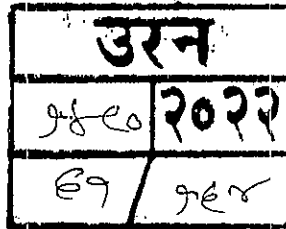 उरन
१५९० २०२२
६१ / १६४